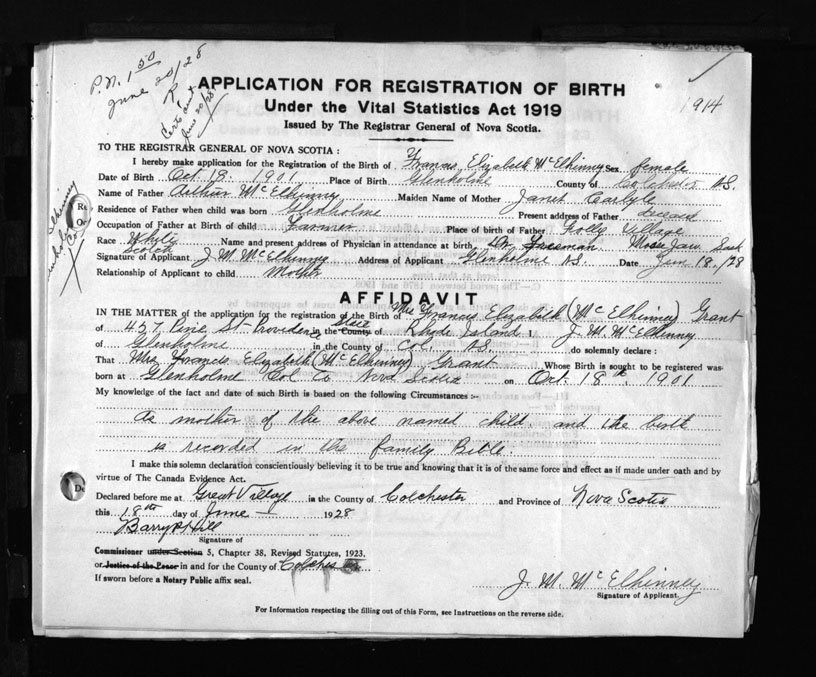 P.N. 1 50
June 20/28
Cert's out
June 20/28
1914
APPLICATION FOR REGISTRATION OF BIRTH
Under the Vital Statistics Act 1919
Issued by The Registrar General of Nova Scotia.
TO THE REGISTRAR GENERAL OF NOVA SCOTIA :
I hereby make application for the Registration of the Birth of Francis Elizabeth McElhinney Sex female
Date of Birth Oct 18. 1901 Place of Birth Glenholme County of Colchester N.S.
Name of Father Arthur McElhinny Maiden Name of Mother Janet Carlyle
Residence of Father when child was born Glenholme Present address of Father deceased
Occupation of Father at Birth of Child Farmer Place of birth of Father Folly Village
Race Whyte Scotch Name and present address of Physician in attendance at birth Dr. Freeman Moose Jaw Sask
Signature of Applicant J. M. McElhinny Address of Applicant Glenholme N.S. Date Jun 18./28
Relationship of Applicant to child Mother
AFFIDAVIT
IN THE MATTER of the application for the registration of the Birth of Mrs Francis Elizabeth (McElhinney) Grant
of 457 Pine St. Providence in the County State of Rhode Island. I, J. M. McElhinny
of Glenholme in the County of Col. N.S. do solemnly declare :
That Mrs Francis Elizabeth (McElhinney) Grant Whose Birth is sought to be registered was
born at Glenholme Col Co Nova Scotia on Oct. 18th. 1901
My knowledge of the fact and date of such Birth is based on the following Circumstances :-
As mother of the above named child and the birth
is recorded in the family Bible.
I make this solemn declaration conscientiously believing it to be true and knowing that it is of the same force and effect as if made under oath and by
virtue of The Canada Evidence Act.
Declared before me at Great Village in the County of Colchester and Province of Nova Scotia
this 18th day of June 1928
Barry Hill
Signature of
Commissioner under Section 5, Chapter 38, Revised Statutes, 1923.
or Justice of the Peace in and for the County of Colchester
If sworn before a Notary Public affix seal.
J. M. McElhinney
Signature of Applicant.
For Information respecting the filling out of this Form, see Instructions on the reverse side.